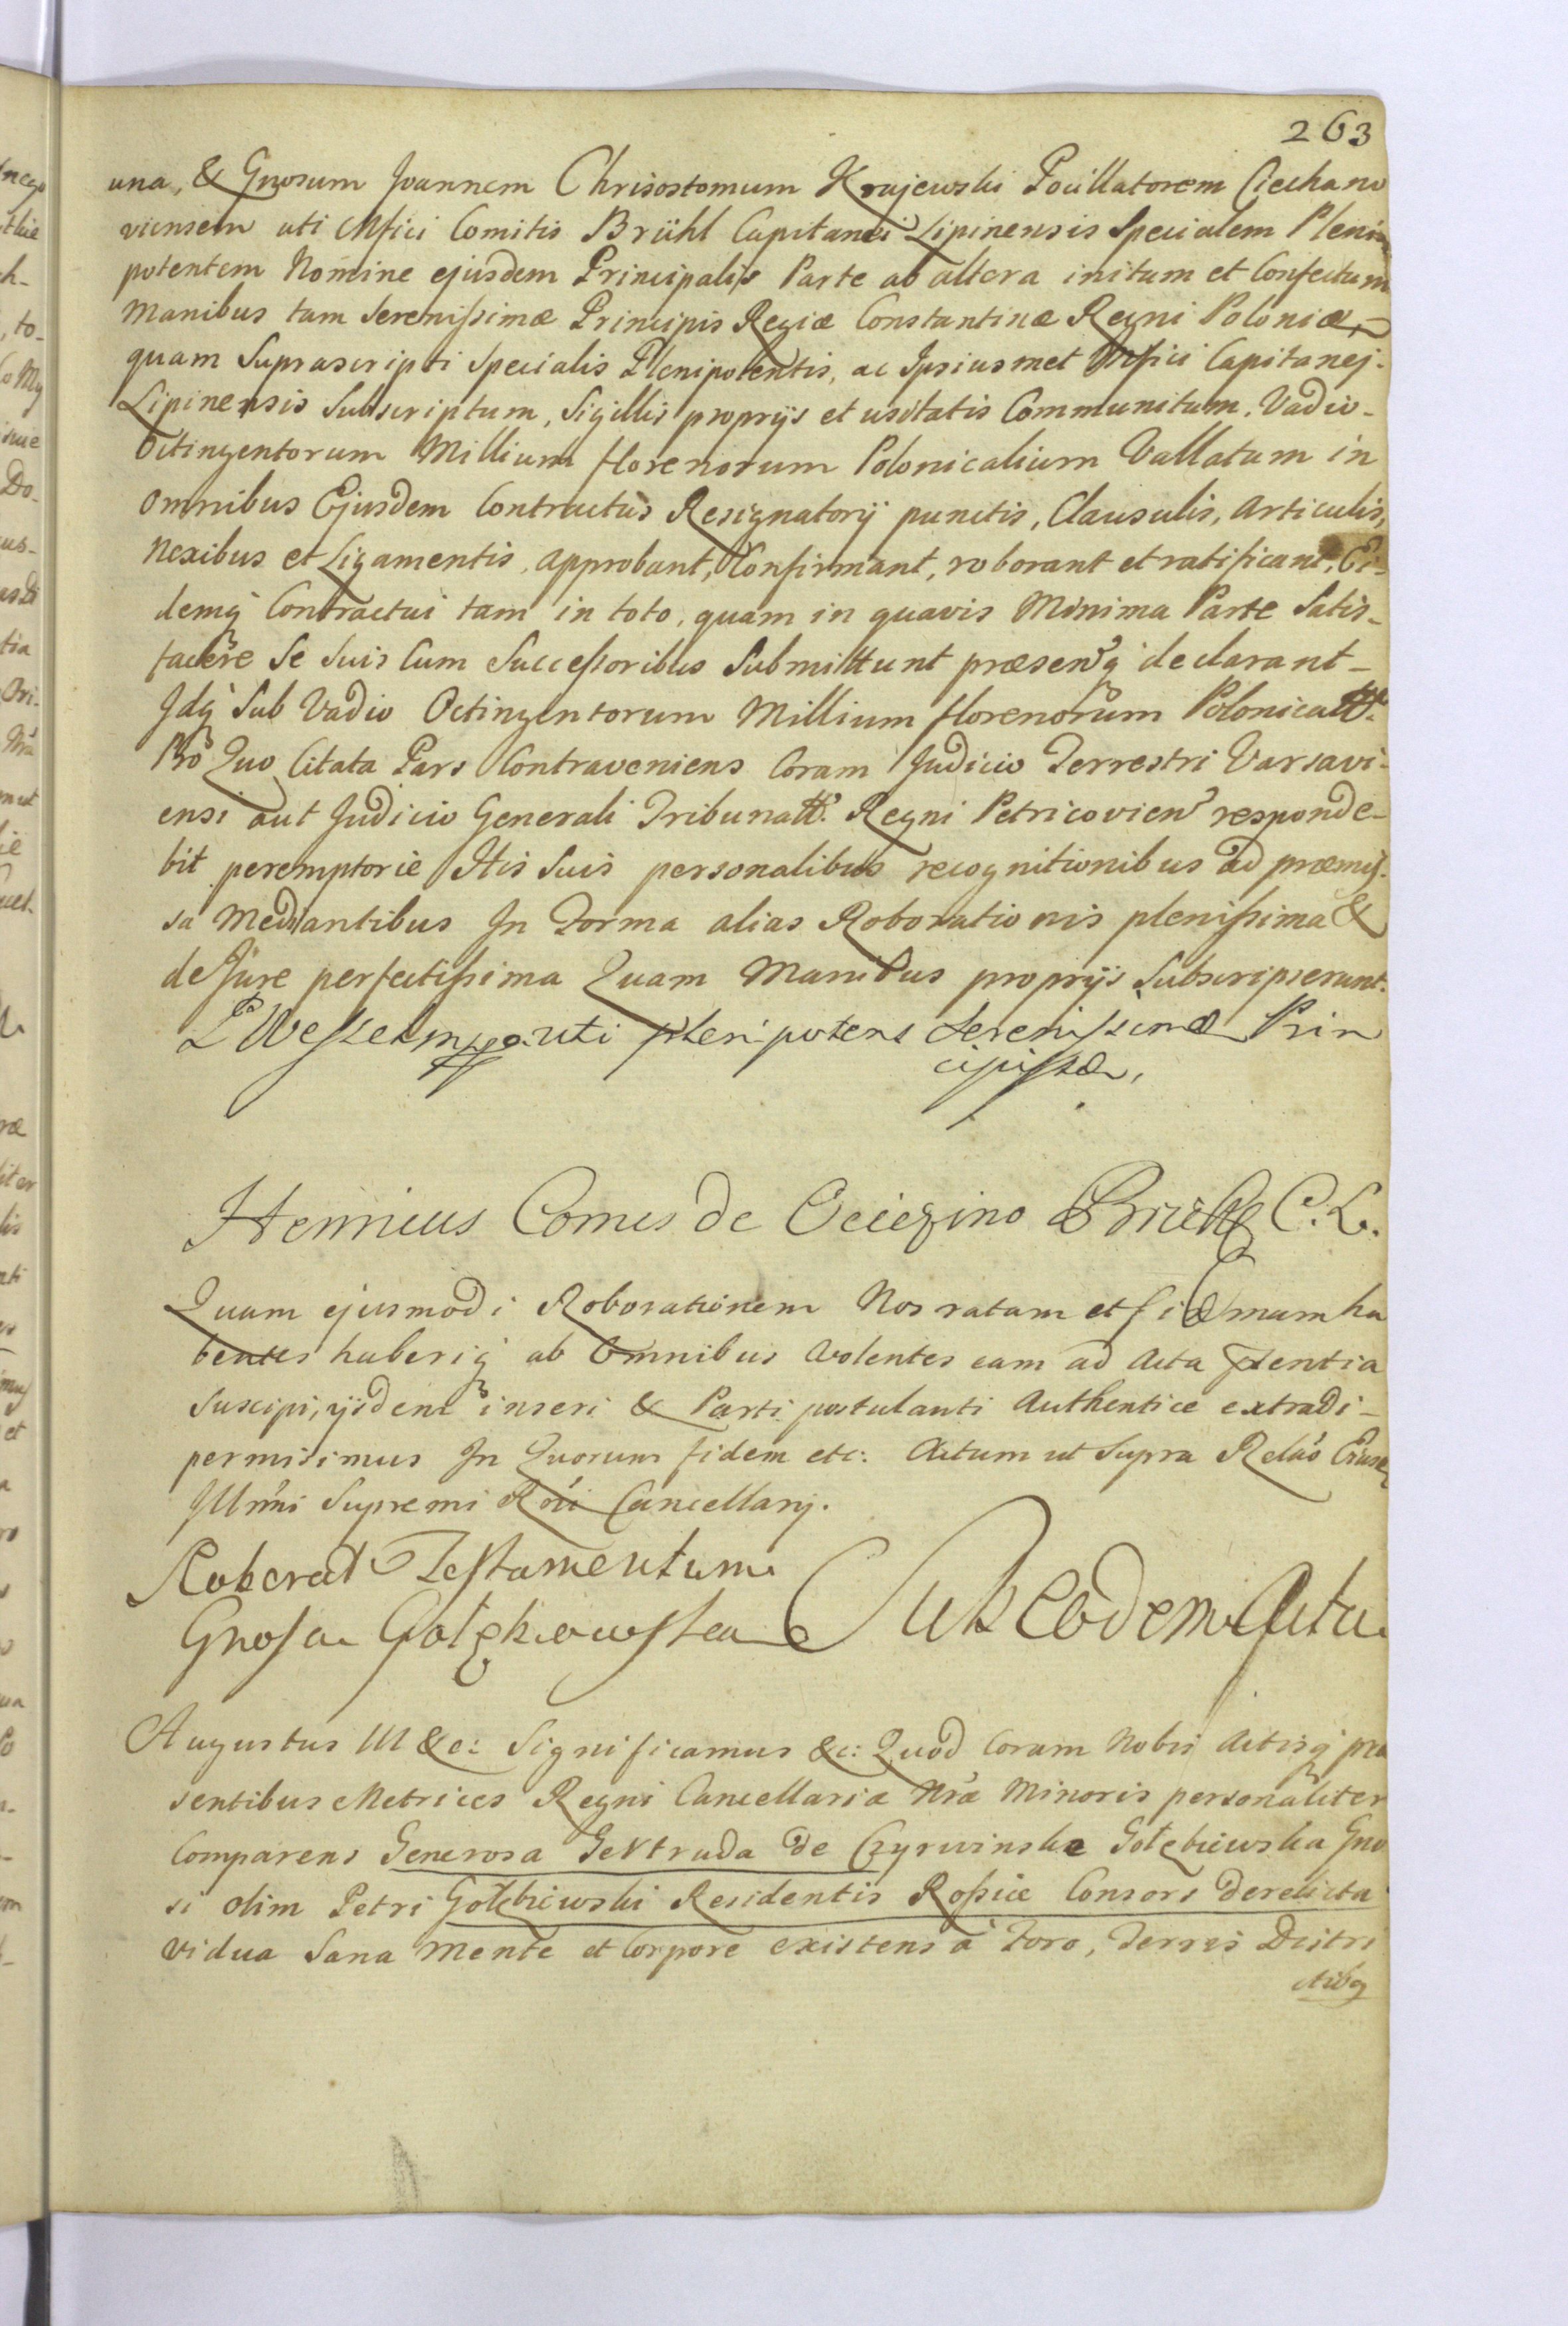 263
una, & Gnosum Joannem Chrisostomum Krajewski Pocillatorem Ciechano
viensem uti Mfici Comitis Brühl Capitanei Lipinensis Specialem Pleni
potentem Nomine ejusdem Principalis Parte ab altera initum et Confectum
Manibus tam Serenissimæ Principis Regiæ Constantinæ Regni Poloniæ,
quam Suprascripti Specialis Plenipotentis, ac Ipsiusmet Mfici Capitanej
Lipinensis Subscriptum, Sigillis proprijs et usitatis Communitum, Vadio
Octingentorum Millium florenorum Polonicalium Vallatum in
Omnibus Ejusdem Contractus Resignatorij punctis, Clausulis, Articulis,
Nexibus et Ligamentis, approbant, Confirmant, roborant et ratificant, Ei
demq Contractui tam in toto, quam in quavis Minima Parte Satis-
facere Se Suis Cum Successoribus Submittunt præsenq declarant
Idq Sub Vadio Octingentorum Millium florenorum Polonica
Pro Quo Citata Pars Contraveniens Coram Judicio Terrestri Varsavi-
ensi aut Judicio Generali Tribunatt. Regni Petricovien responde-
bit peremptorie Htis Suis personalibus recognitionibus ad præmis-
sa Mediantibus In Forma alias Roborationis plenissima &
de Jure perfectissima Quam Manibus proprijs Subscripserunt.
uti plenipotens Serenissimæ Prin
cipissæ,
Henricus Comes de Ocieszino Brühl C. L.
Quam ejusmodi Roborationem Nos ratam et firmam ha
bentes haberiq ab Omnibus Volentes eam ad Acta
Suscipi, ijsdem inseri & Parti postulanti Authentice extradi-
permisimus In Quorum fidem etc: Actum ut Supra Relão
Illmi Supremi Rni Cancellarij.
Roborat Testamentum
Gnosa Gołębiowska
Sub Eodem Actu
Augustus III &c: Significamus &c: Quod Coram Nobis Actisq præ
sentibus Metrices Regni Cancellariæ Nræ Minoris personaliter
Comparens Generosa Gertruda de Czyrwinskie Gołębiewska Gno
si olim Petri Gołębiewski Residentis Rossiæ Consors derelicta
vidua Sana Mente et Corpore existens à Foro, Terris Distri
ctibq